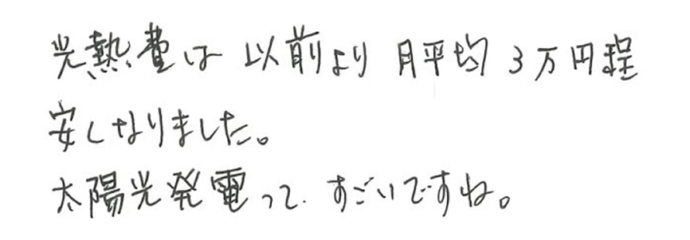 光熱費は 以前より 月平均 3万円程
安くなりました。
太陽光発電って すごいですね。